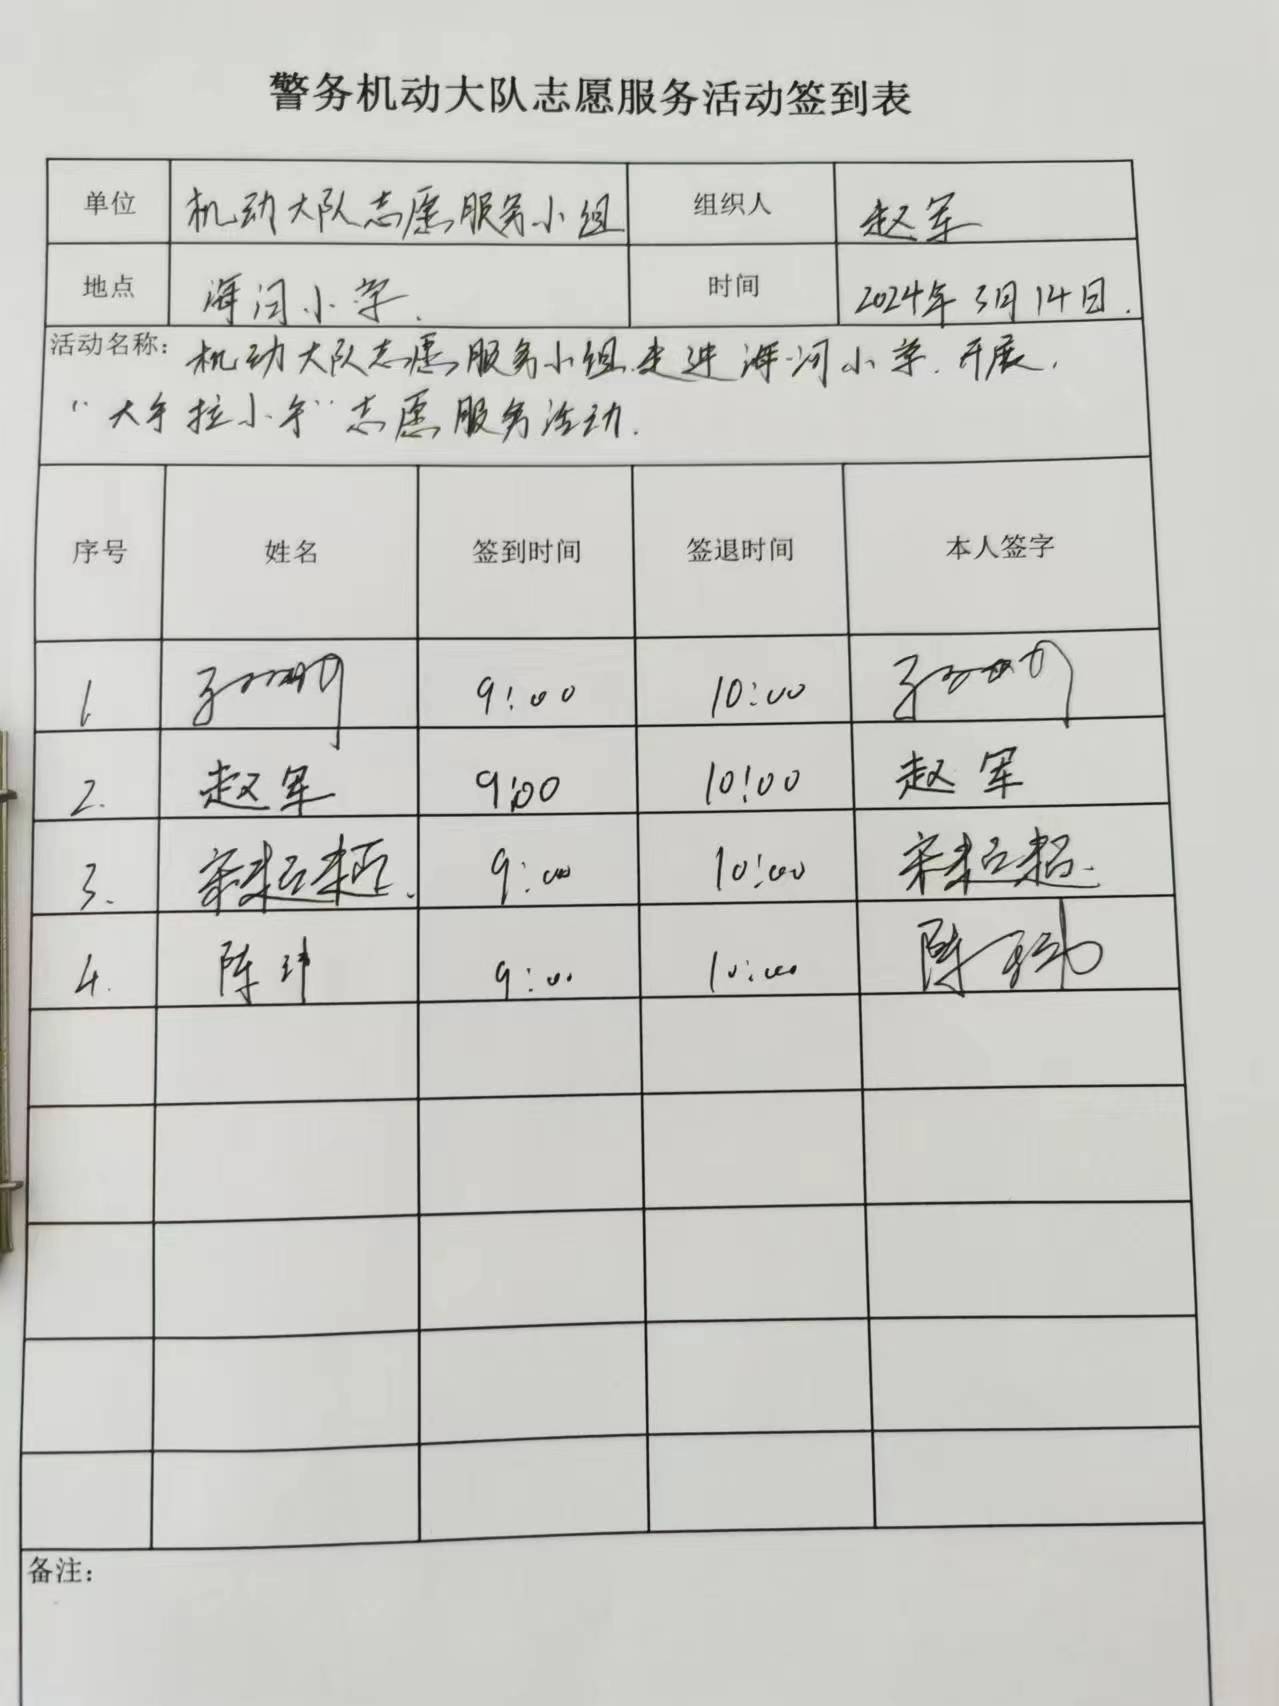 警务机动大队志愿服务活动签到表
单位 机动大队志愿服务小组 组织人 赵军
地点 海河小学. 时间 2024年3月14日.
活动名称： 机动大队志愿服务小组走进海河小学.开展.
“大手拉小手”志愿服务活动.
序号 姓名 签到时间 签退时间 本人签字
1. 9:00 10:00
2. 赵军 9:00 10:00 赵军
3. 宋超超. 9:00 10:00 宋超超.
4. 陈玮 9:00 10:00 陈玮
备注：